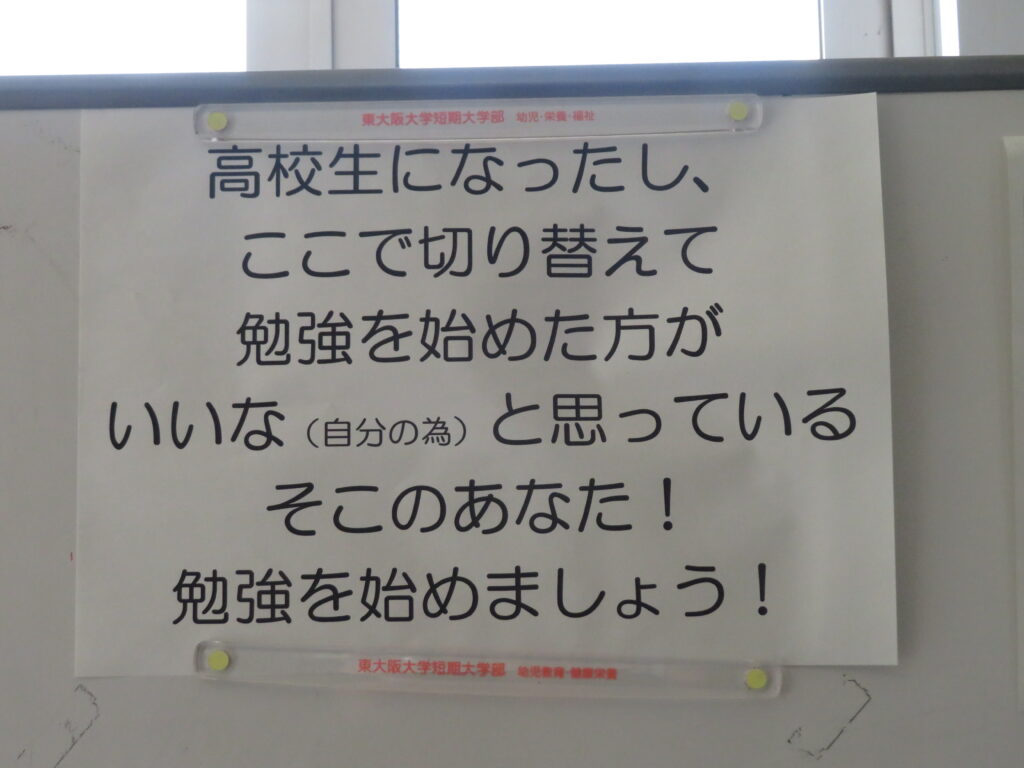 東大阪大学短期大学部 幼児・栄養・福祉
高校生になったし、
ここで切り替えて
勉強を始めた方が
いいな（自分の為）と思っている
そこのあなた！
勉強を始めましょう！
東大阪大学短期大学部 幼児教育・健康栄養